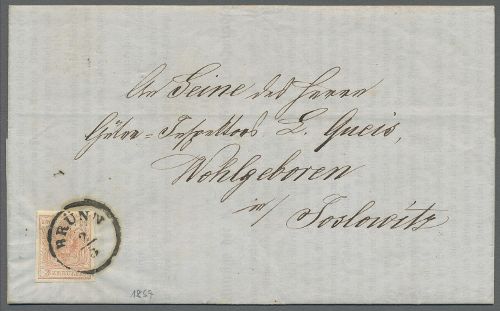 An Seine des Herrn
Güter-Inspektors L. Queis,
Wohlgeboren
in/ Joslowitz
BRÜNN
2/5
1854